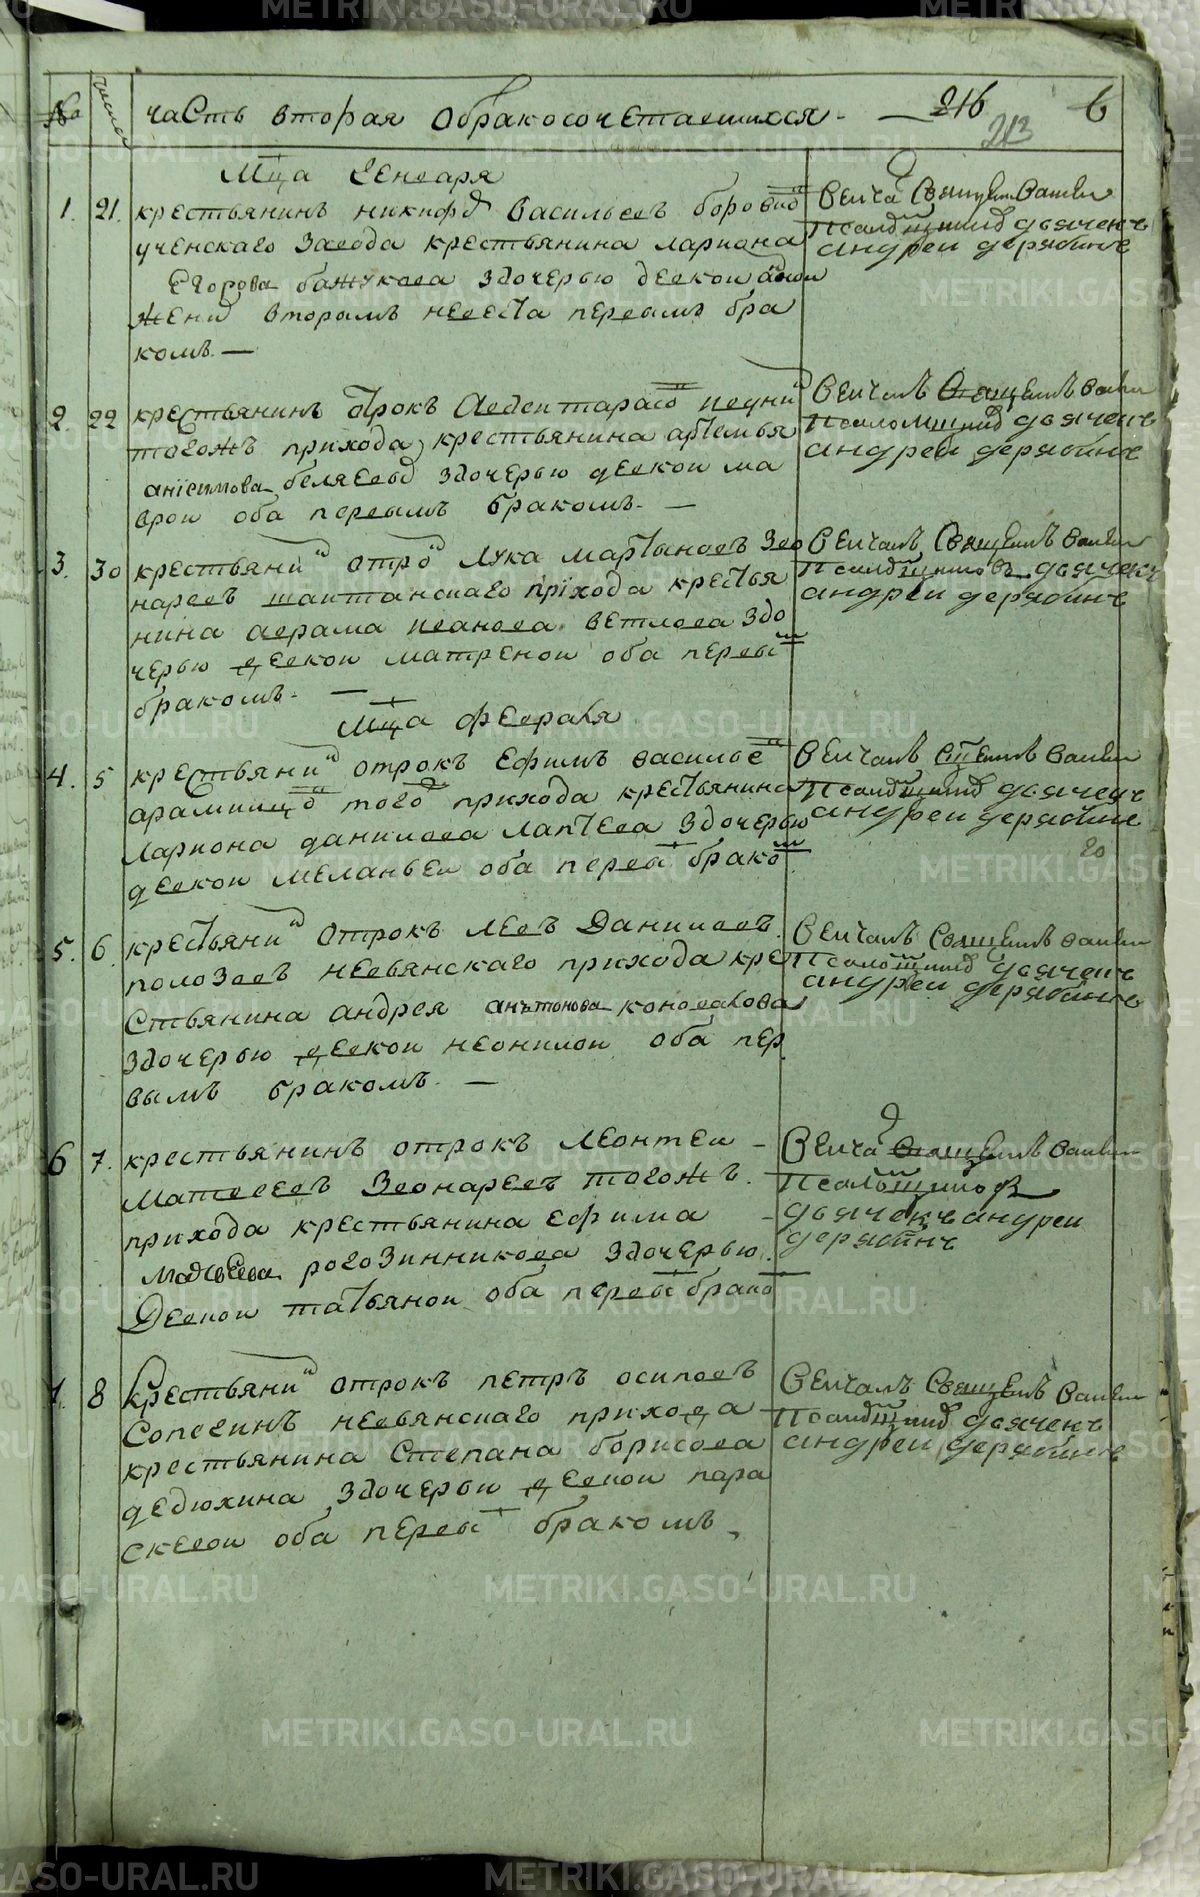 METRIKI.GASO-URAL.RU
№ число часть вторая обракосочетавшихся 216 6
213
Мца Генваря
1. 21. крестьянинъ никифо Васильевъ
ученскаго Завода крестьянина лариона
Егорова бажукова здочерью девкои
жени вторымъ невеста первымъ бра
комъ. —
Венча Священ Василеи
дьячекъ
андреи дерябинъ
2. 22 крестьянинъ отрокъ
тогожъ прихода крестьянина артемья
анiсимова беляевы здочерью девкои ма
врои оба первымъ бракомъ. —
Венчалъ Василеи
дьячекъ
андреи дерябинъ
3. 30 крестьяни отро Лука мартыновъ Зво
наревъ шаитанскаго прiхода крестья
нина аврама иванова ветлова здо
черью девкои матреной оба первы
бракомъ. —
Венчалъ Священъ Василеи
дьячекъ
андреи дерябинъ
Мца февраля
4. 5 крестьяни отрокъ Ефимъ василье
того прихода крестьянина
лариона данилова лаптева здочерью
девкои меланьеи оба первы брако
Венчалъ Василеи
дьячекъ
андреи дерябинъ
5. 6. крестьяни отрокъ левъ Даниловъ
полозовъ невьянскаго прихода кре
стьянина андрея анътонова коновалова
здочерью девкои неонилои оба пер
вымъ бракомъ. —
Венчалъ Священъ василеи
дьячекъ
андреи дерябинъ
6 7. крестьянинъ отрокъ леонтеи —
Матвеевъ Звонаревъ тогожъ
прихода крестьянина ефима
Мадвеева рогозинникова здочерью
Девкои татьянои оба первы брако
Венча Василеи
дьячекъ андреи
дерябинъ
7. 8 Крестьяни отрокъ петръ осиповъ
Сопегинъ невьянскаго прихода
крестьянина Степана борисова
дедюхина здочерьи девкои пара
скевои оба первы бракомъ
Венчалъ Священъ Василеи
дьячекъ
андреи дерябинъ